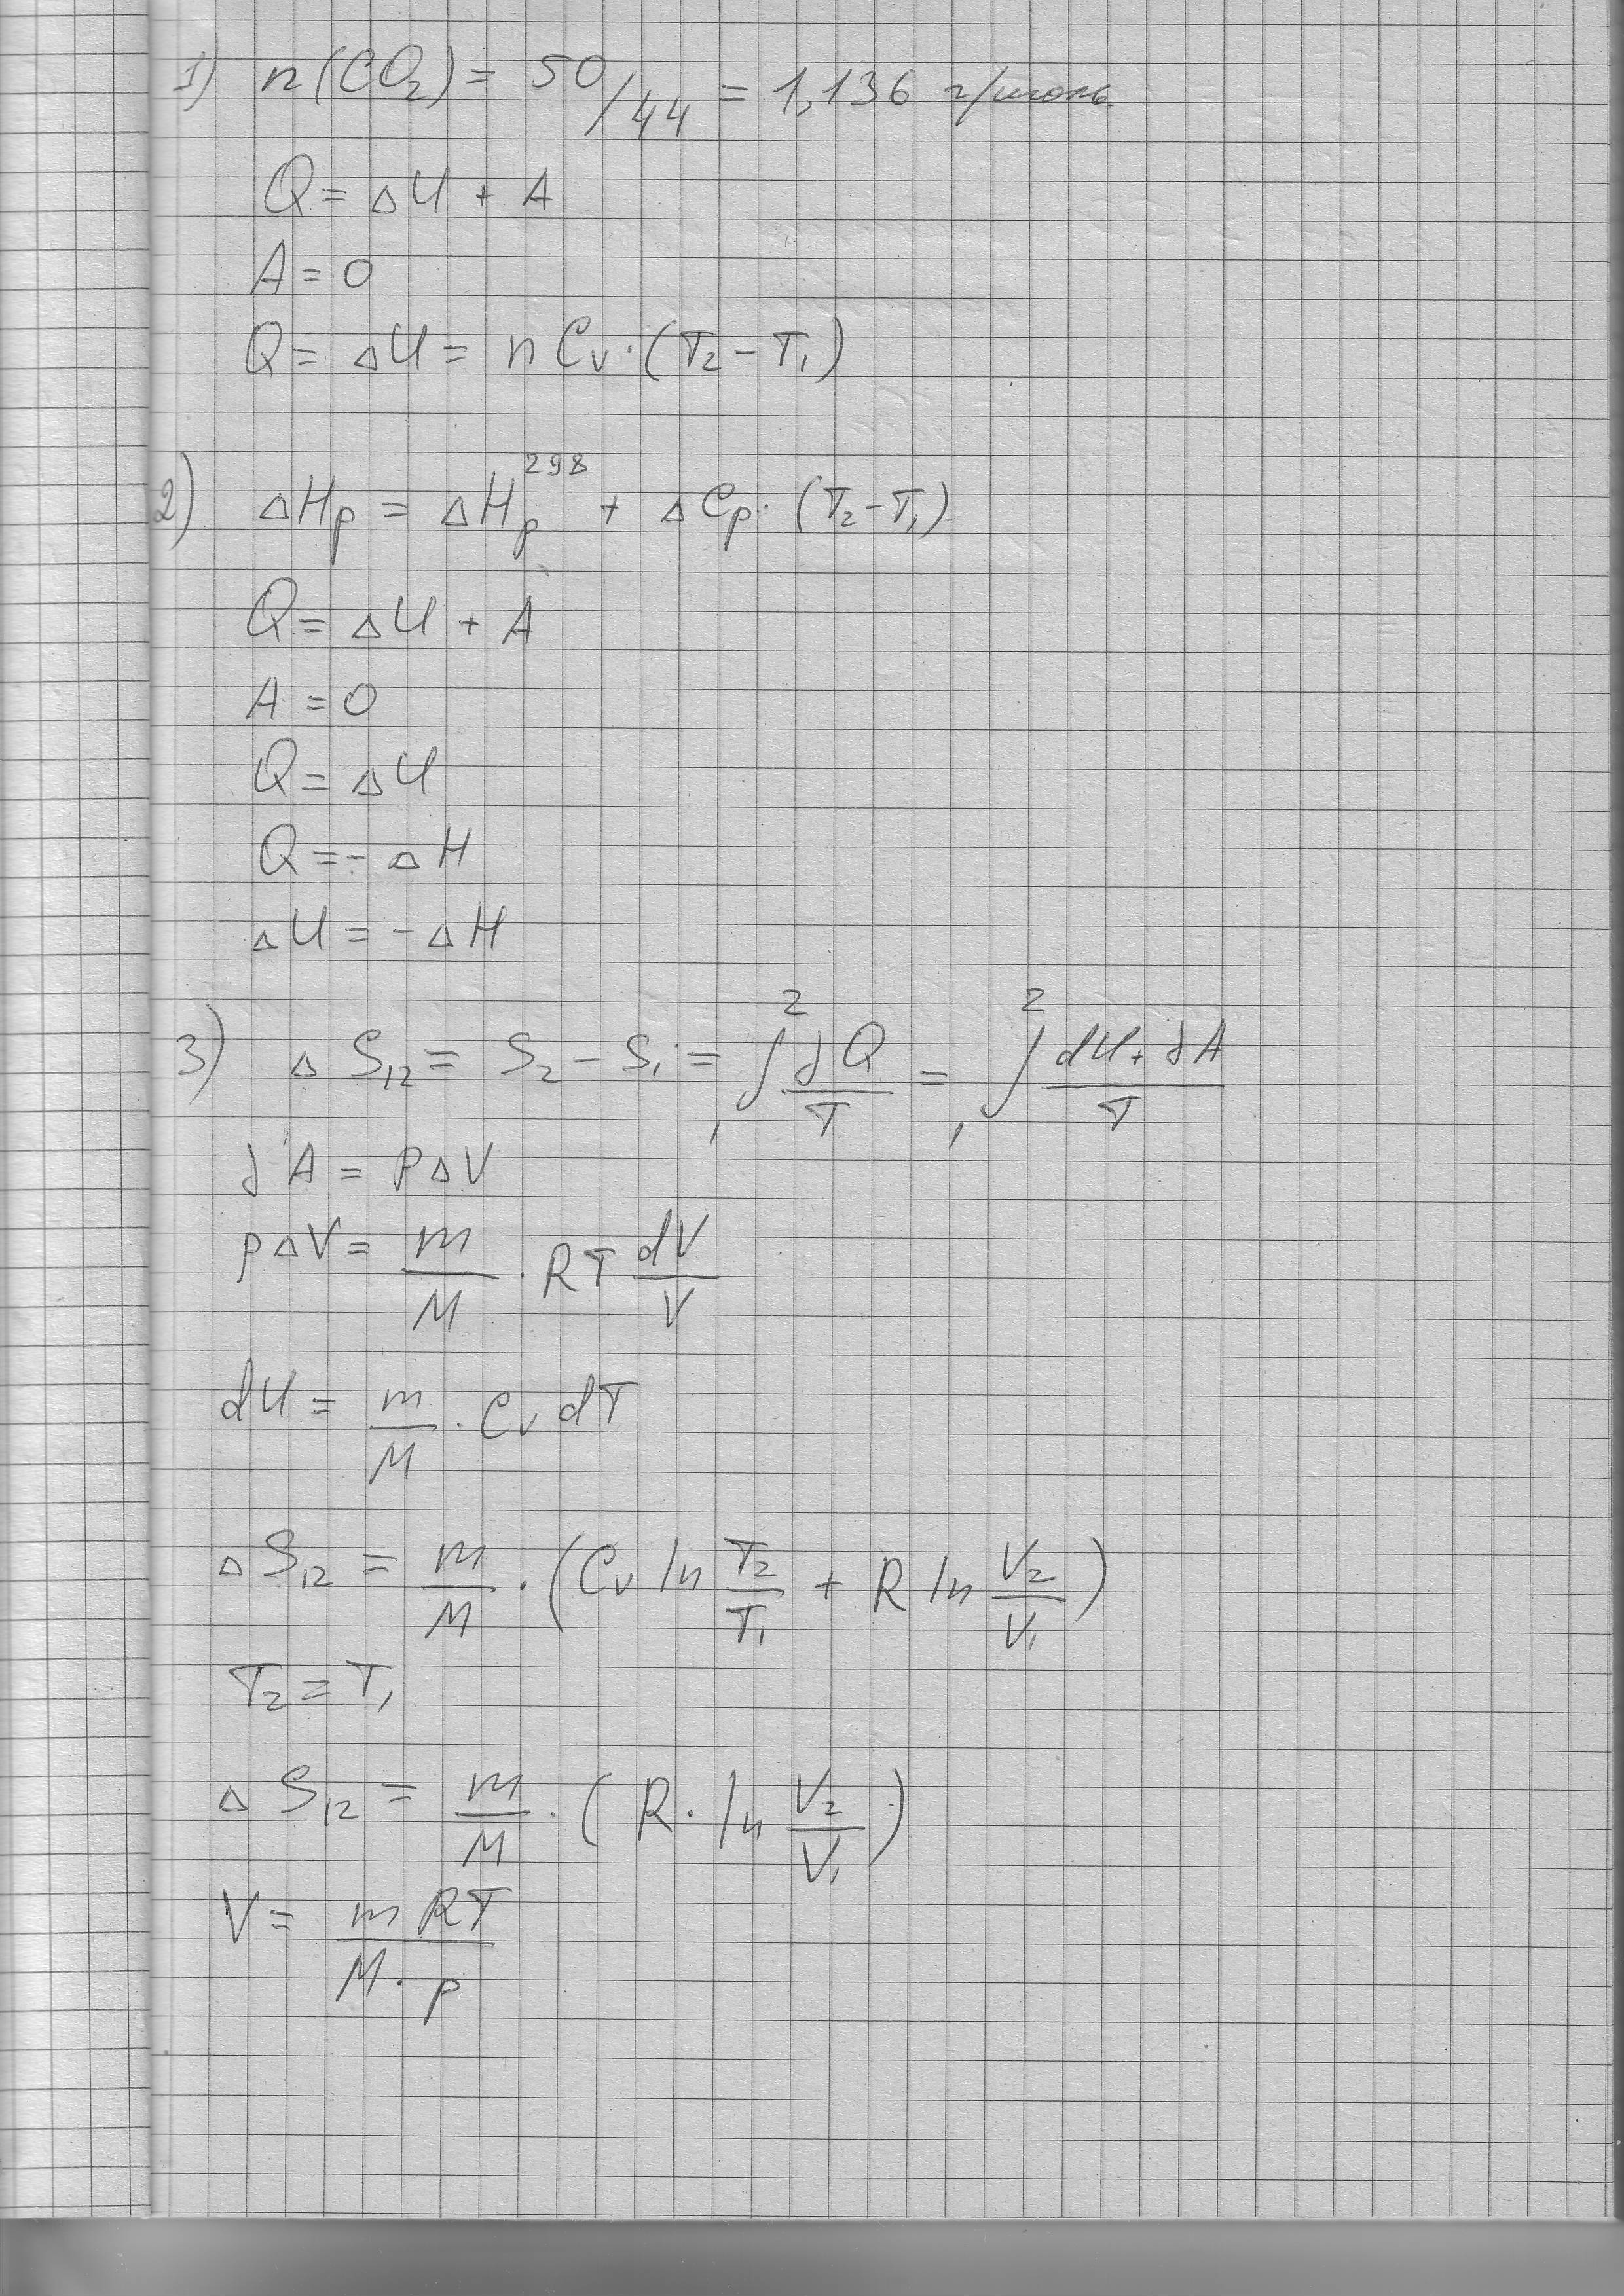 1) n(CO₂) = 50/44 = 1,136 г/моль.
Q = ΔU + A
A = 0
Q = ΔU = n Cᵥ · (T₂ – T₁)
2) ΔHₚ = ΔHₚ²⁹⁸ + ΔCₚ · (T₂ – T₁)
Q = ΔU + A
A = 0
Q = ΔU
Q = - ΔH
ΔU = - ΔH
3) ΔS₁₂ = S₂ – S₁ = ₁∫² δQ/T = ₁∫² (dU + δA)/T
δA = PΔV
pΔV = m/M · RT dV/V
dU = m/M · Cᵥ dT
ΔS₁₂ = m/M · (Cᵥ ln T₂/T₁ + R ln V₂/V₁)
T₂ = T₁
ΔS₁₂ = m/M · (R · ln V₂/V₁)
V = mRT/M · p